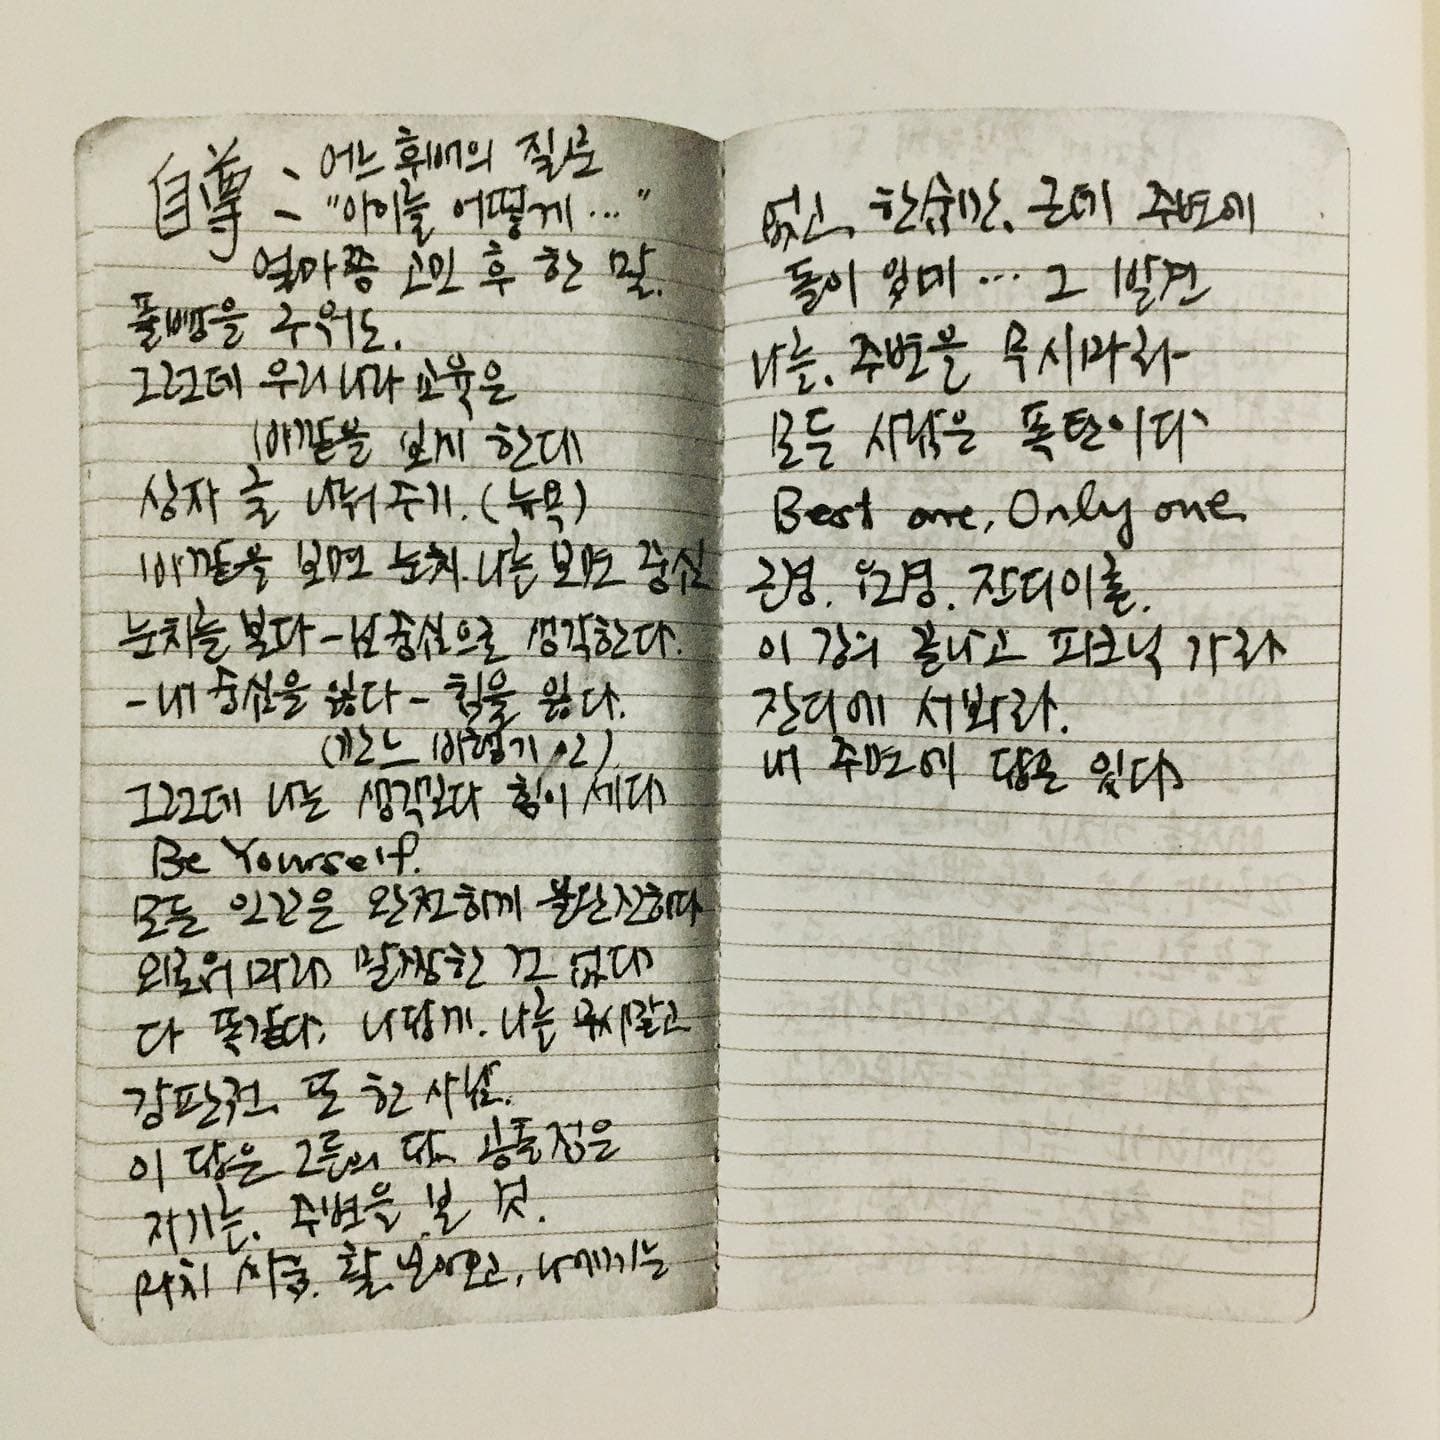 自尊 : 어느 후배의 질문
"아이를 어떻게..."
얼마쯤 고민 후 한 말.
풀빵을 구워도.
그런데 우리나라 교육은
바깥을 보게 한다
상자 글 나눠주기. (뉴욕)
바깥을 보면 눈치. 나를 보면 중심
눈치를 본다 - 남 중심으로 생각한다.
- 내 중심을 잃다 - 힘을 잃다.
그런데 나는 생각보다 힘이 세다
Be Yourself.
모든 인간은 완전하게 불완전하다
외로워 마라 말짱한 건 없다
다 똑같다. 나답게. 나를 무시말고
강판권. 또 한 사람.
이 답은 그들의 답. 공통점은
자기를. 주변을 볼 것.
마치 싸움. 활 날아오고, 나에게는
없고. 한순간. 근데 주변에
돌이 있네... 그 발견
나를. 주변을 무시마라
모든 사람은 폭탄이다
Best one, Only one
근경. 원경. 잔디이론.
이 강의 끝나고 피크닉 가라
잔디에 서봐라.
내 주변에 답은 있다